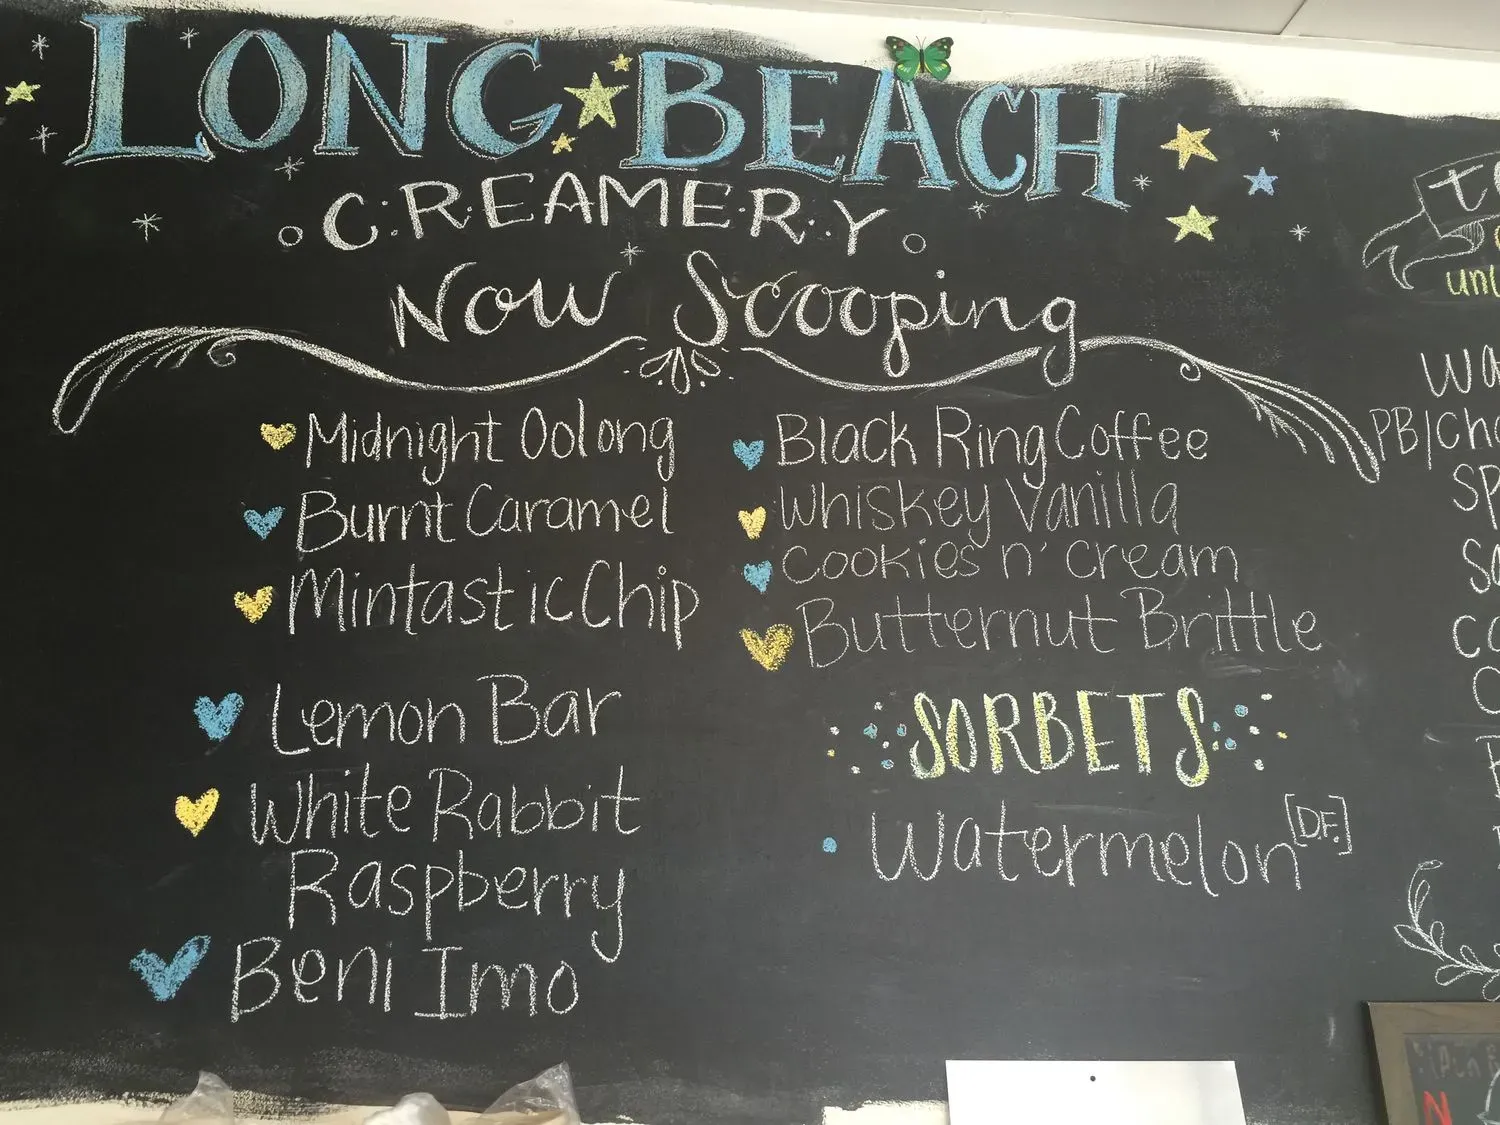 LONG BEACH
CREAMERY
Now Scooping
Midnight Oolong
Burnt Caramel
Mintastic Chip
Lemon Bar
White Rabbit
Raspberry
Beni Imo
Black Ring Coffee
Whiskey Vanilla
Cookies n' Cream
Butternut Brittle
SORBETS
Watermelon [D.F.]
PB/Cho